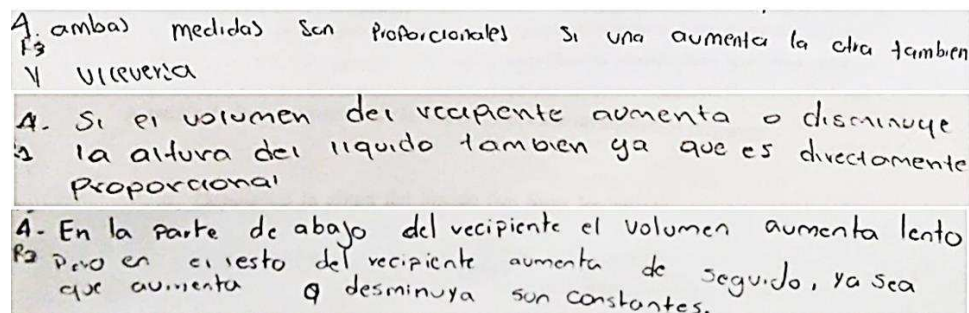 A. ambas medidas son Proporcionales si una aumenta la otra tambien
P3
y viceversa
A. Si el volumen del recipiente aumenta o disminuye
la altura del liquido tambien ya que es directamente
Proporcional
A. En la parte de abajo del recipiente el volumen aumenta lento
P2 Pero en el resto del recipiente aumenta de seguido, ya sea
que aumenta o desminuya son constantes.